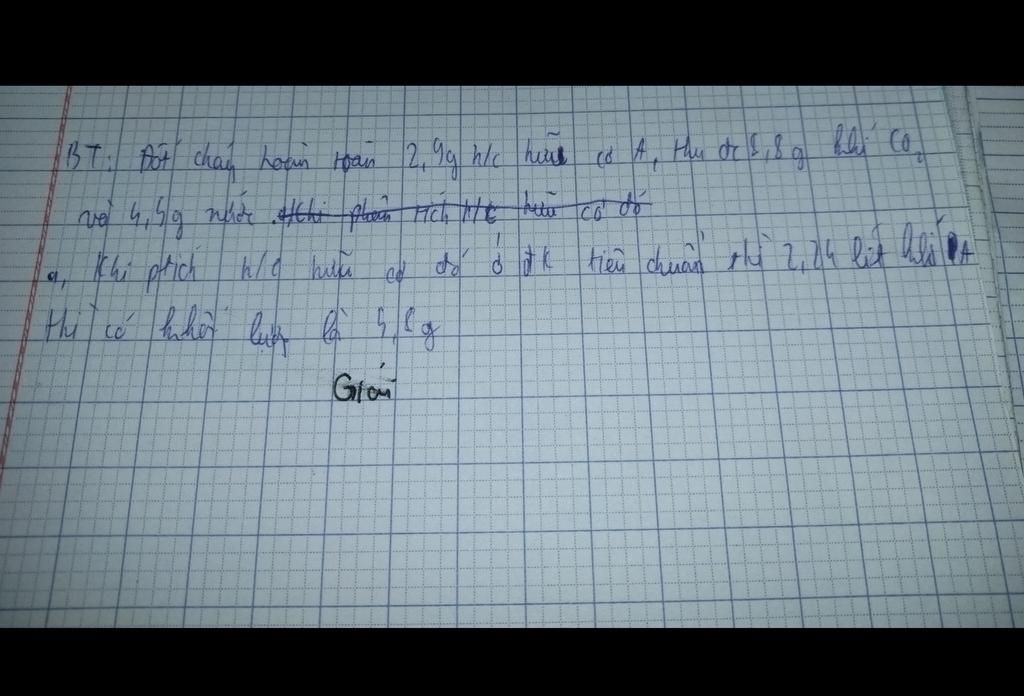 BT: Đốt cháy hoàn toàn 2,9g h/c hữu cơ A, thu đc 8,8g khí CO2
và 4,5g nước. Khi phân tích h/c hữu cơ đó
a, Khi ptích h/c hữu cơ đó ở đk tiêu chuẩn thì 2,24 lít khí A
thì có khối lượng là 5,8g
Giải